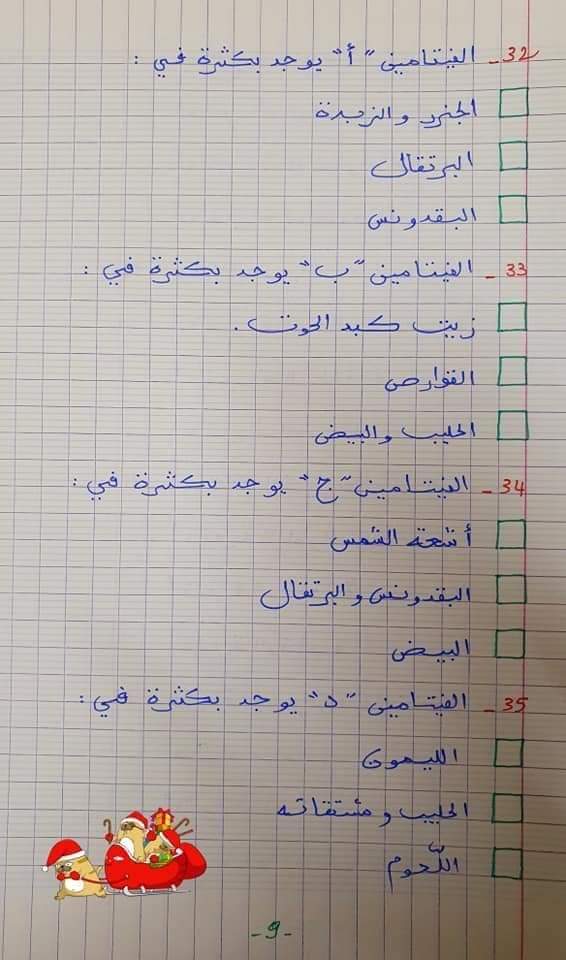 32- الفيتامين "أ" يوجد بكثرة في :
الجزر والزبدة
البرتقال
البقدونس
33- الفيتامين "ب" يوجد بكثرة في :
زيت كبد الحوت .
القوارص
الحليب والبيض
34- الفيتامين "ج" يوجد بكثرة في :
أشعة الشمس
البقدونس والبرتقال
البيض
35- الفيتامين "د" يوجد بكثرة في :
الليمون
الحليب ومشتقاته
اللّحوم
-9-